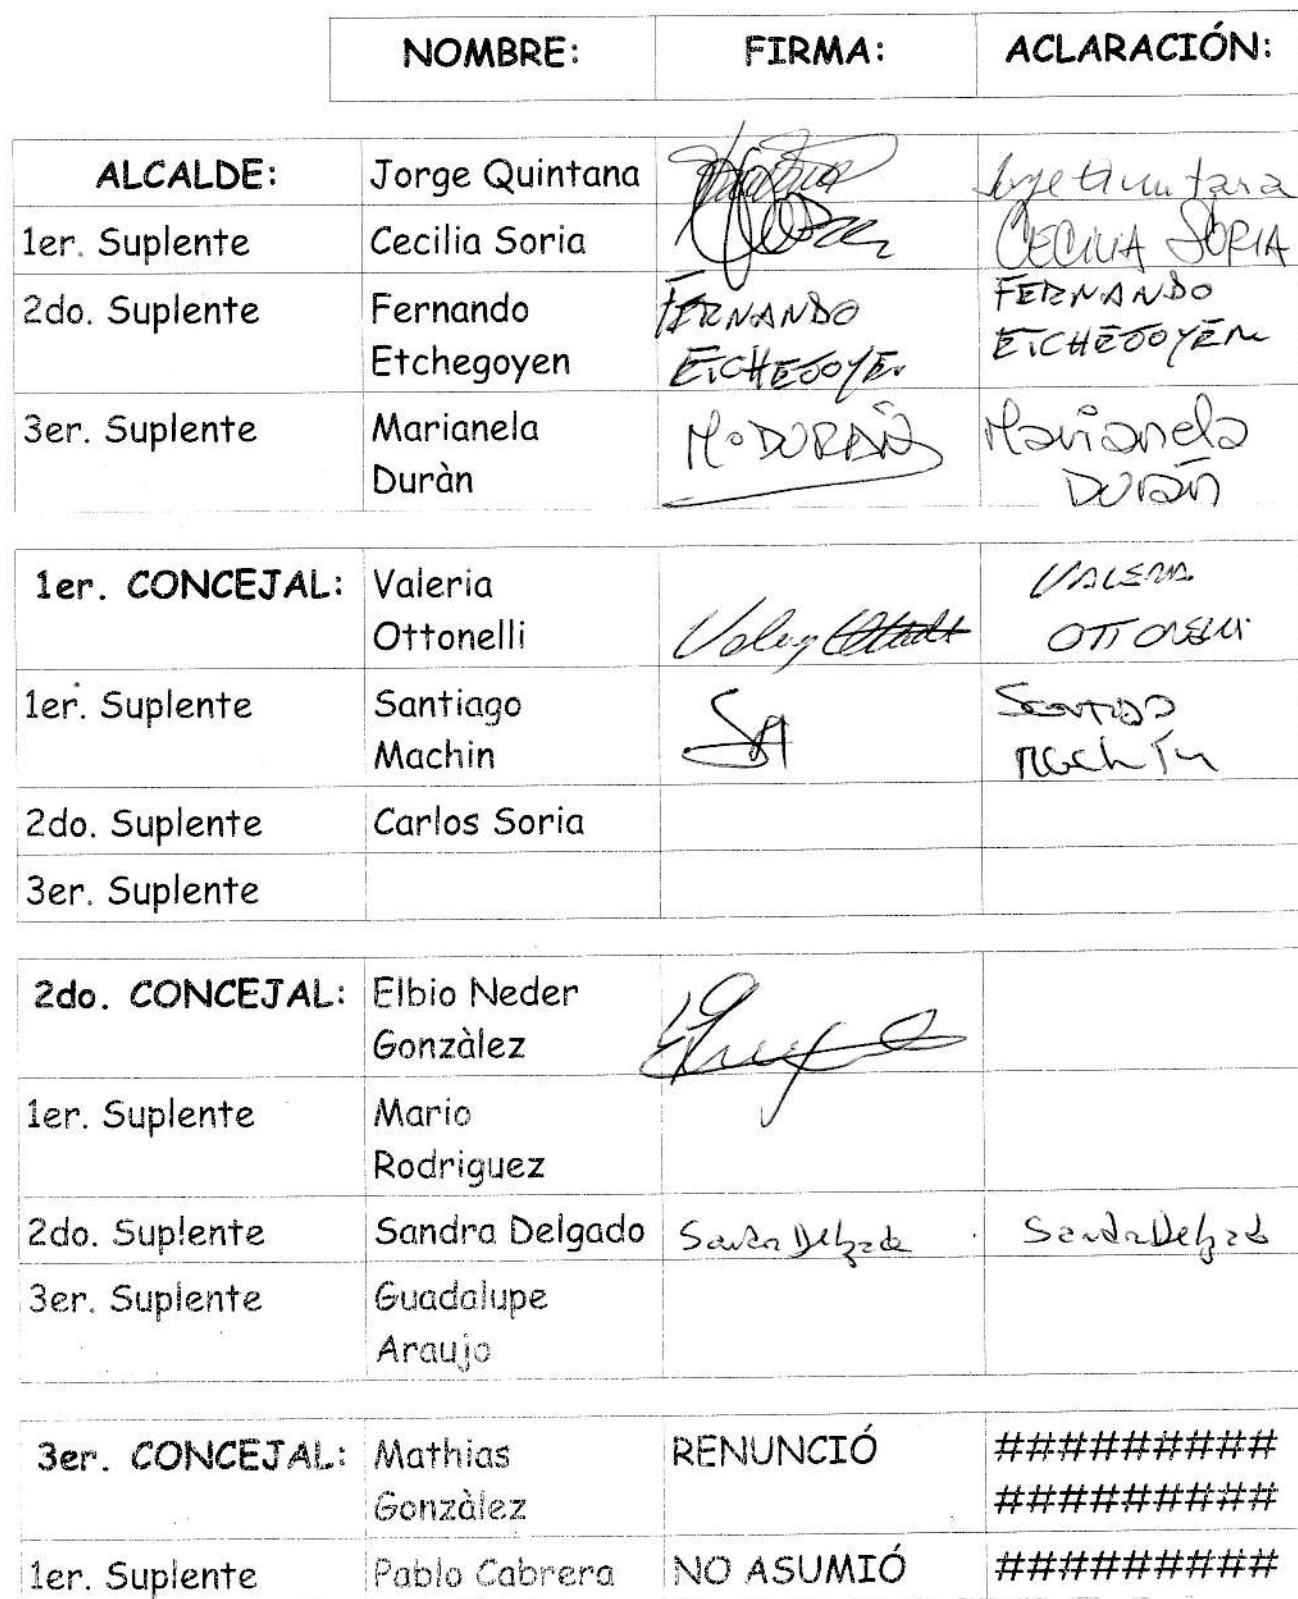 NOMBRE: FIRMA: ACLARACIÓN:
ALCALDE: Jorge Quintana Jorge Quintana
1er. Suplente Cecilia Soria CECILIA SORIA
2do. Suplente Fernando FERNANDO FERNANDO
Etchegoyen ETCHEGOYEN ETCHEGOYEN
3er. Suplente Marianela Mª DURÁN Marianela
Duràn DURÁN
1er. CONCEJAL: Valeria VALERIA
Ottonelli OTTONELLI
1er. Suplente Santiago Santiago
Machin Machín
2do. Suplente Carlos Soria
3er. Suplente
2do. CONCEJAL: Elbio Neder
Gonzàlez
1er. Suplente Mario
Rodriguez
2do. Suplente Sandra Delgado Sandra Delgado Sandra Delgado
3er. Suplente Guadalupe
Araujo
3er. CONCEJAL: Mathias RENUNCIÓ #########
Gonzàlez #########
1er. Suplente Pablo Cabrera NO ASUMIÓ #########